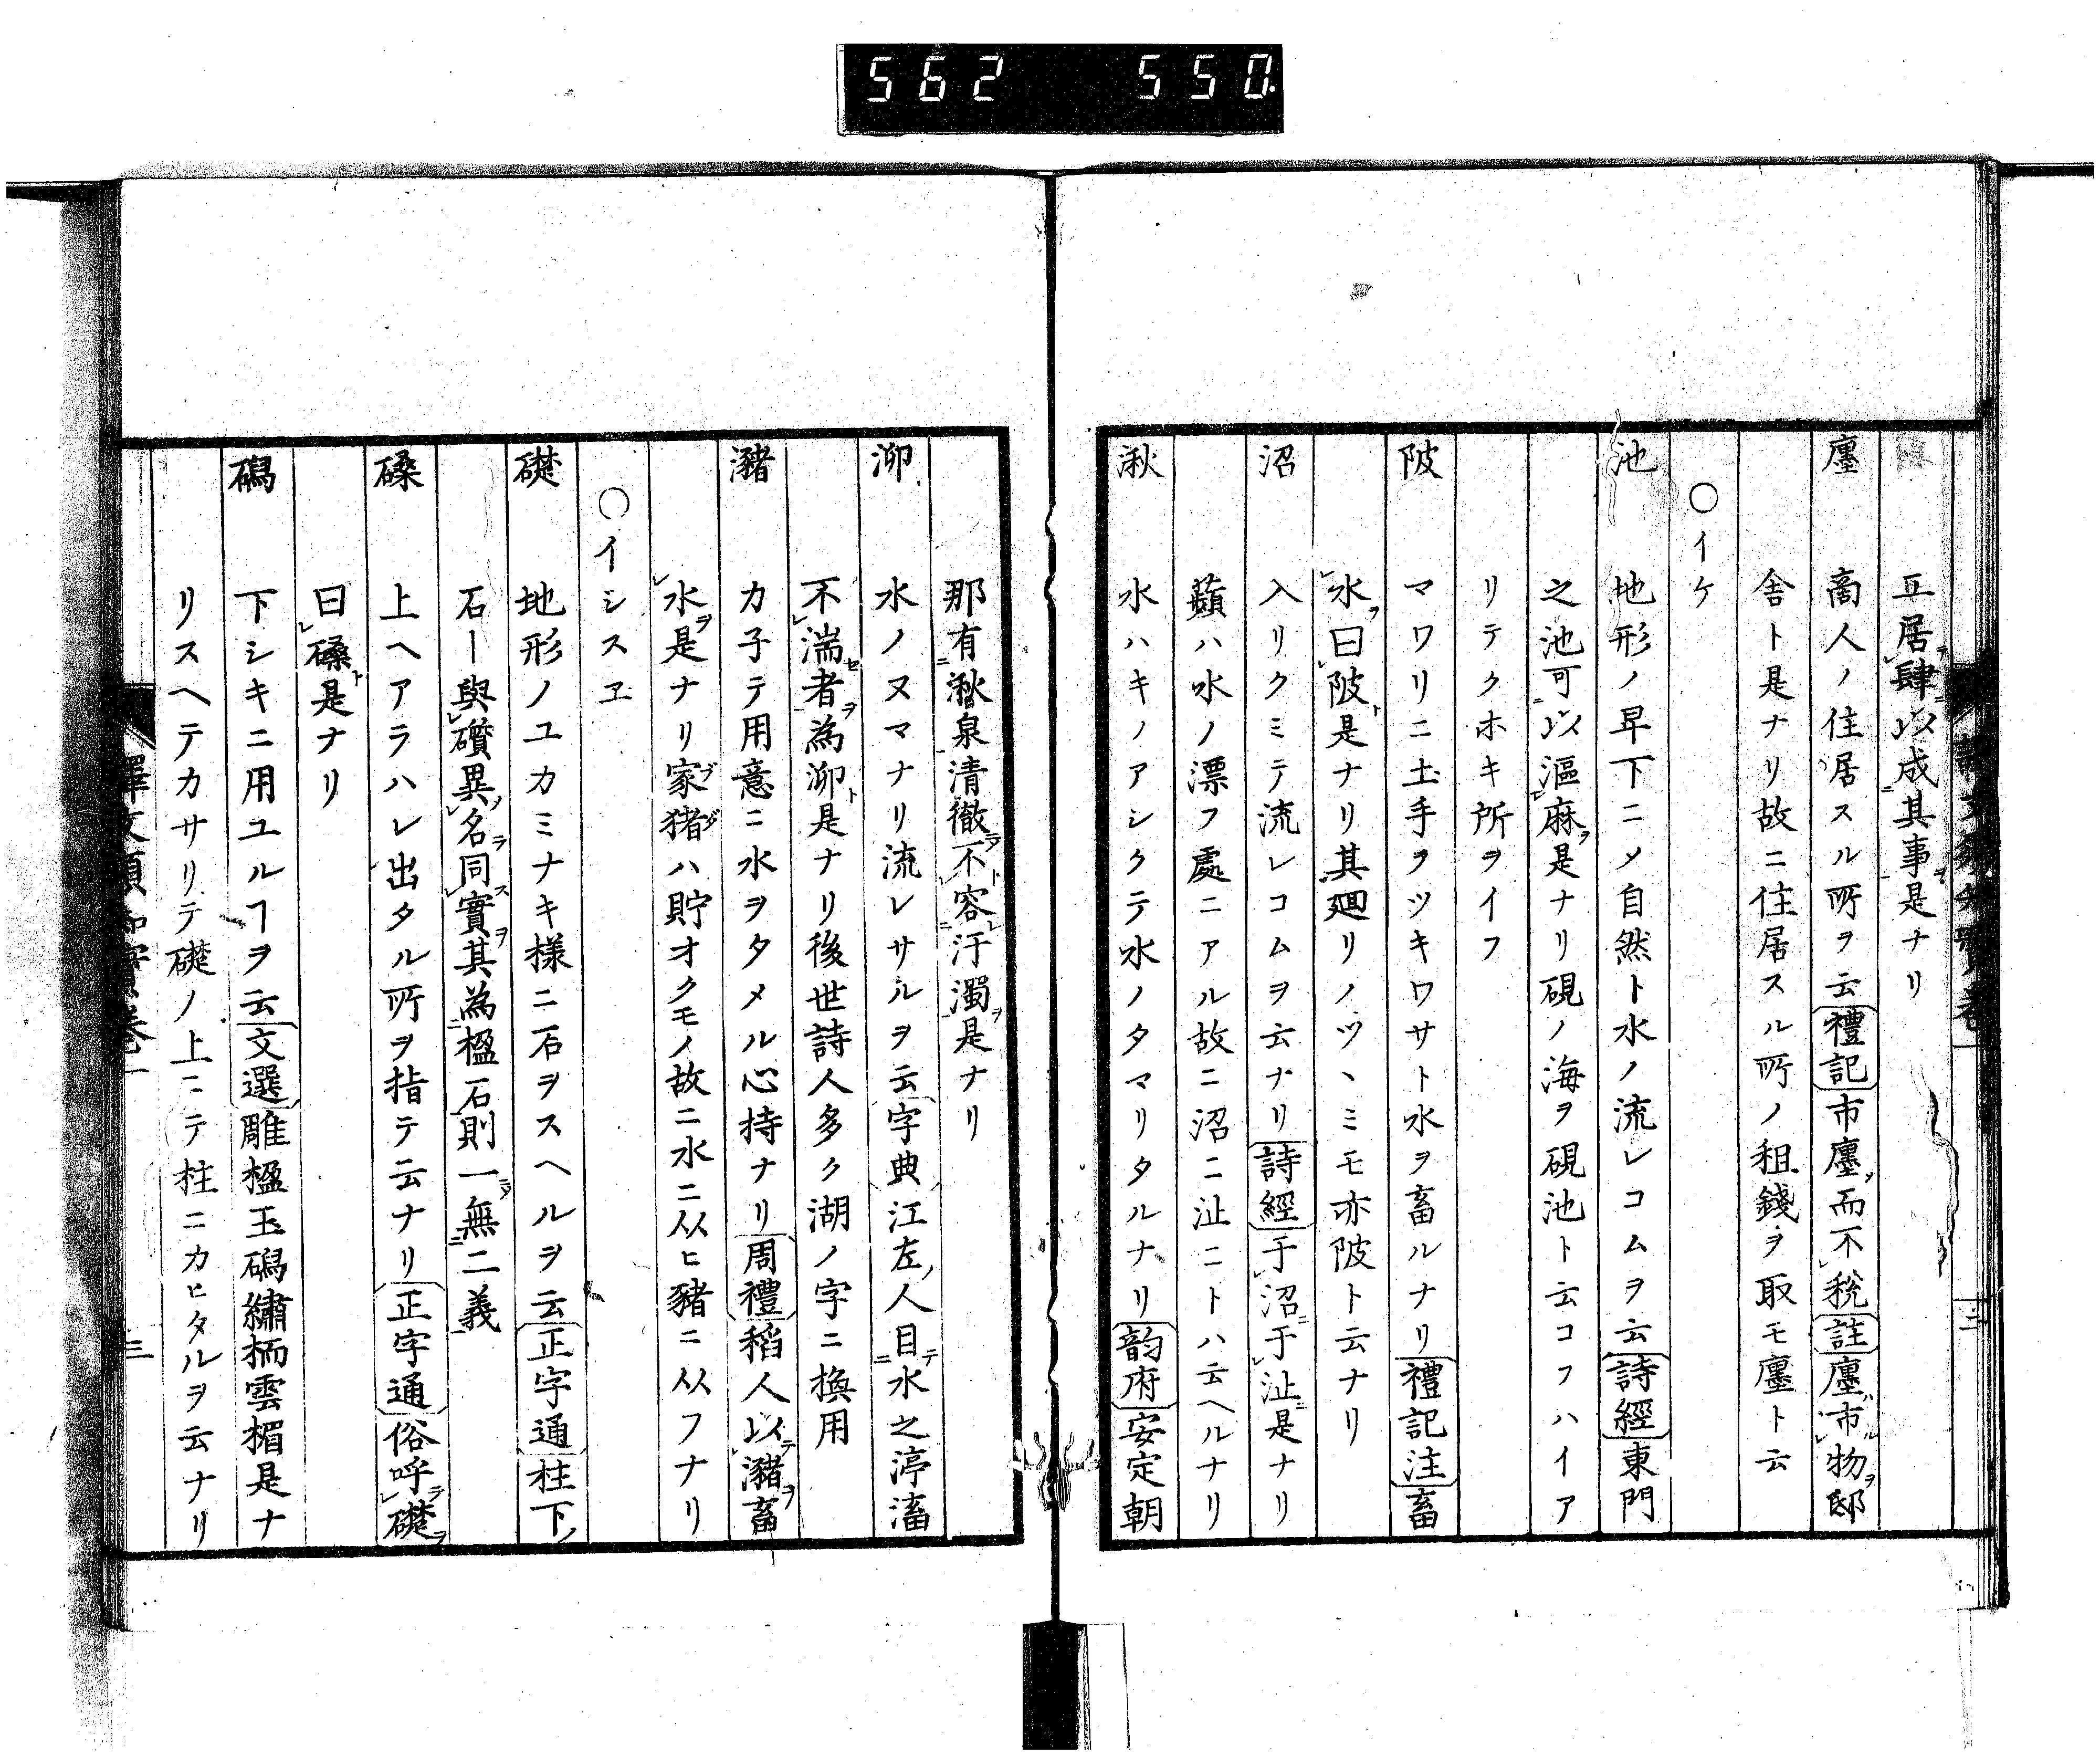 562 550
工居肆以成其事是ナリ
廛 商人ノ住居スル所ヲ云禮記市廛而不税註廛市物邸
舎ト是ナリ故ニ住居スル所ノ租錢ヲ取モ廛ト云
○イケ
池 地形ノ卑下ニメ自然ト水ノ流レコムヲ云詩經東門
之池可以漚麻是ナリ硯ノ海ヲ硯池ト云コフハイア
リテクホキ所ヲイフ
陂 マワリニ土手ヲツキワサト水ヲ畜ルナリ禮記注畜
水曰陂是ナリ其廻リノツヽミモ亦陂ト云ナリ
沼 入リクミテ流レコムヲ云ナリ詩經于沼于沚是ナリ
蘋ハ水ノ漂フ處ニアル故ニ沼ニ沚ニトハ云ヘルナリ
湫 水ハキノアシクテ水ノタマリタルナリ韵府安定朝
那有湫泉清徹不容汙濁是ナリ
泖 水ノヌマナリ流レサルヲ云字典江左人目水之渟滀
不湍者為泖是ナリ後世詩人多ク湖ノ字ニ換用
瀦 カ子テ用意ニ水ヲタメル心持ナリ周禮稲人以瀦畜
水是ナリ家猪ハ貯オクモノ故ニ水ニ从ヒ豬ニ从フナリ
○イシスヱ
礎 地形ノユカミナキ様ニ石ヲスヘルヲ云正字通柱下
石ー與礩異名同實其為楹石則一無二義
磉 上ヘアラハレ出タル所ヲ指テ云ナリ正字通俗呼礎
曰磉是ナリ
磶 下シキニ用ユルヿヲ云文選雕楹玉磶繡栭雲楣是ナ
リスヘテカサリテ礎ノ上ニテ柱ニカヒタルヲ云ナリ
三